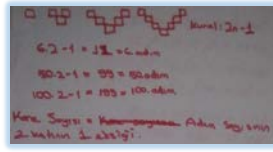 Kural: 2n-1
6.2-1 = 11 = 6. adım
50.2-1 = 99 = 50. adım
100.2-1 = 199 = 100. adım
Kare Sayısı = Adım Sayısının
2 katının 1 eksiği.